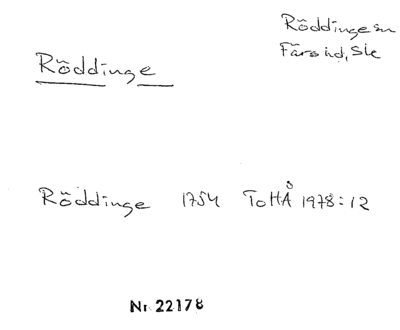 Röddinge sn
Färs hd, Sk
Röddinge
Röddinge 1754 ToHÅ 1978:12
Nr. 22178